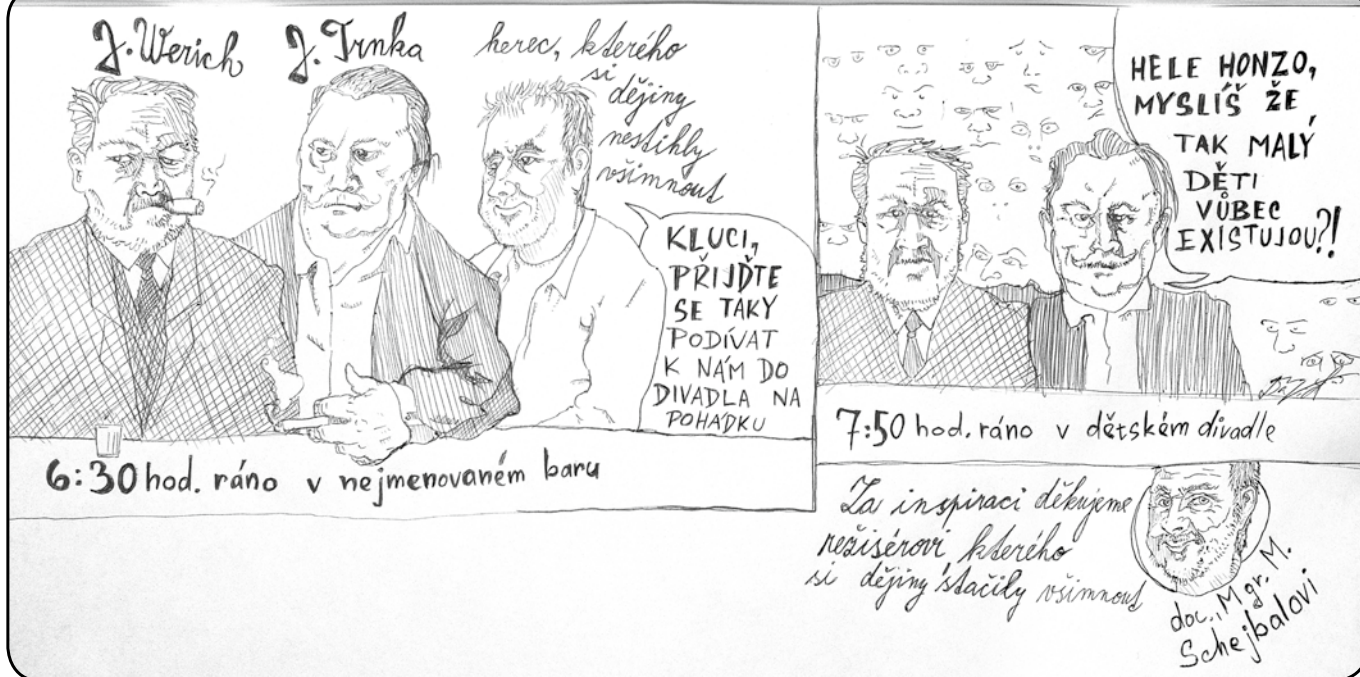 J. Werich
J. Trnka
herec, kterého
si
dějiny
nestihly
všimnout
KLUCI,
PŘIJĎTE
SE TAKY
PODÍVAT
K NÁM DO
DIVADLA NA
POHÁDKU
6:30 hod. ráno v nejmenovaném baru
HELE HONZO,
MYSLÍŠ ŽE
TAK MALÝ
DĚTI
VŮBEC
EXISTUJOU?!
7:50 hod. ráno v dětském divadle
Za inspiraci děkujeme
režisérovi, kterého
si dějiny stačily všimnout
doc., Mgr. M.
Schejbalovi